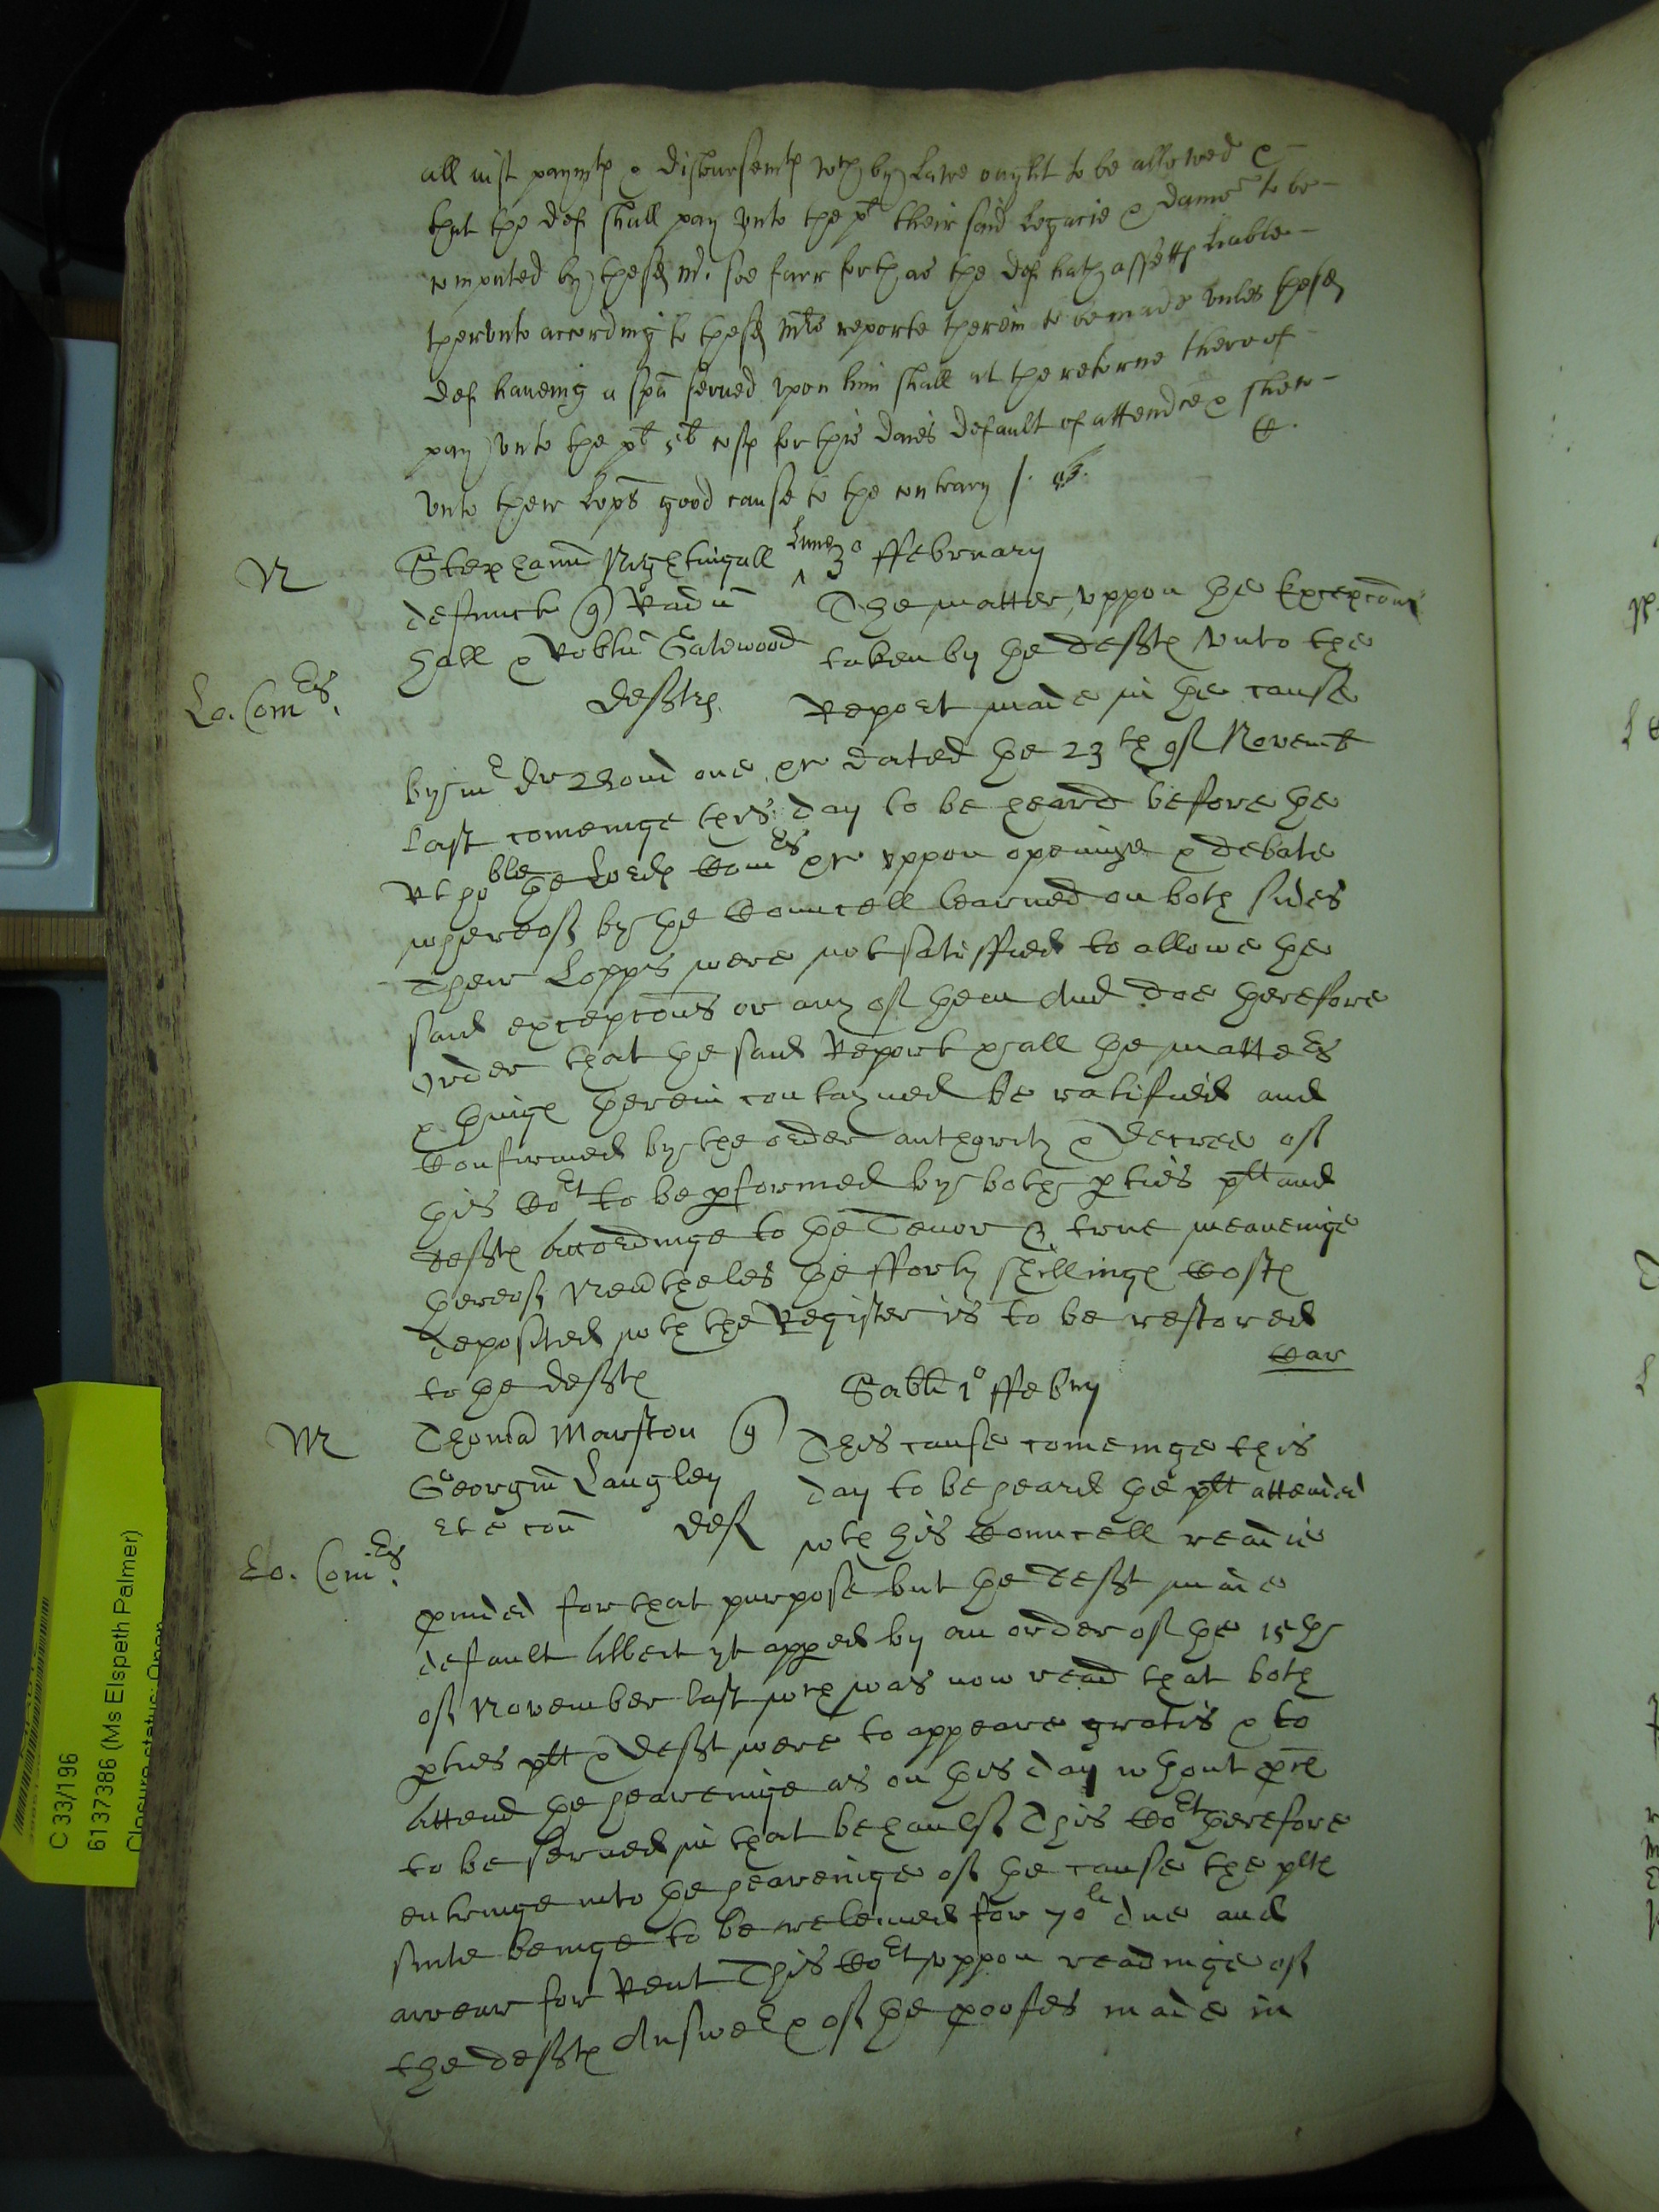 all iust paymtes & disbursemtes wch by Lawe ought to be allowed &
that the def shall pay vnto the plt their said Legacie & damages to be
computed by the sd Mr. soe farr forth as the def hath assetts liable
thervnto according to the sd Mrs reporte therein to be made vnles the sd
def haueing a spa serued vpon him shall at the returne thereof
pay vnto the plt 5l costs for this daies default of attendce & shew
vnto their Lopps good cause to the contrary
N Stephanu Nightingall Lune 3o ffebruary
defunct Radu The matter vppon the Excepcons
Hall & Robtu Gatewood taken by the defftes vnto the
Lo. Comrs. defftes. Report made in the cause
by mr one &c dated the 23th of Novemb
last comeinge this day to be heard before the
Rt hoble the Lordes Comrs &c vppon openinge & debate
whereof by the Councell learned on both sides
Their Lopps were not satisffied to allowe the
said excepcons or any of them And doe therefore
order that the said Report & all the matters
& thinges therein contayned be ratified and
Confirmed by the order authority & decree of
this Cort to be pformed by both pties pltt and
defftes Accordinge to the Tenor & true meaneinge
thereof Neutheles the fforty shillinges Costes
deposited wth the Register is to be restored
to the defftes Car
Sabbti 1o ffebry
M Thoma Marston This cause comeinge this
Georgiu Langley day to be heard the pltt attended
def wth his Councell readie
Lo. Comrs.
puided for that purpose but the defft made
default Albeit yt apped by an order of the 15th
of November last wch was now read that both
pties pltt & defft were to appeare gratis & to
Attend the heareinge as on this day wthout pces
to be serued in that behaulf This Cort therefore
entringe into the heareinge of the cause the pltes
suite beinge to be releiued for 70li due and
arrear for Rent This Cort vppon readinge of
the defftes Answer & of the proofes made in
C 33/196
6137386 (Ms Elspeth Palmer)
Closure status: Open